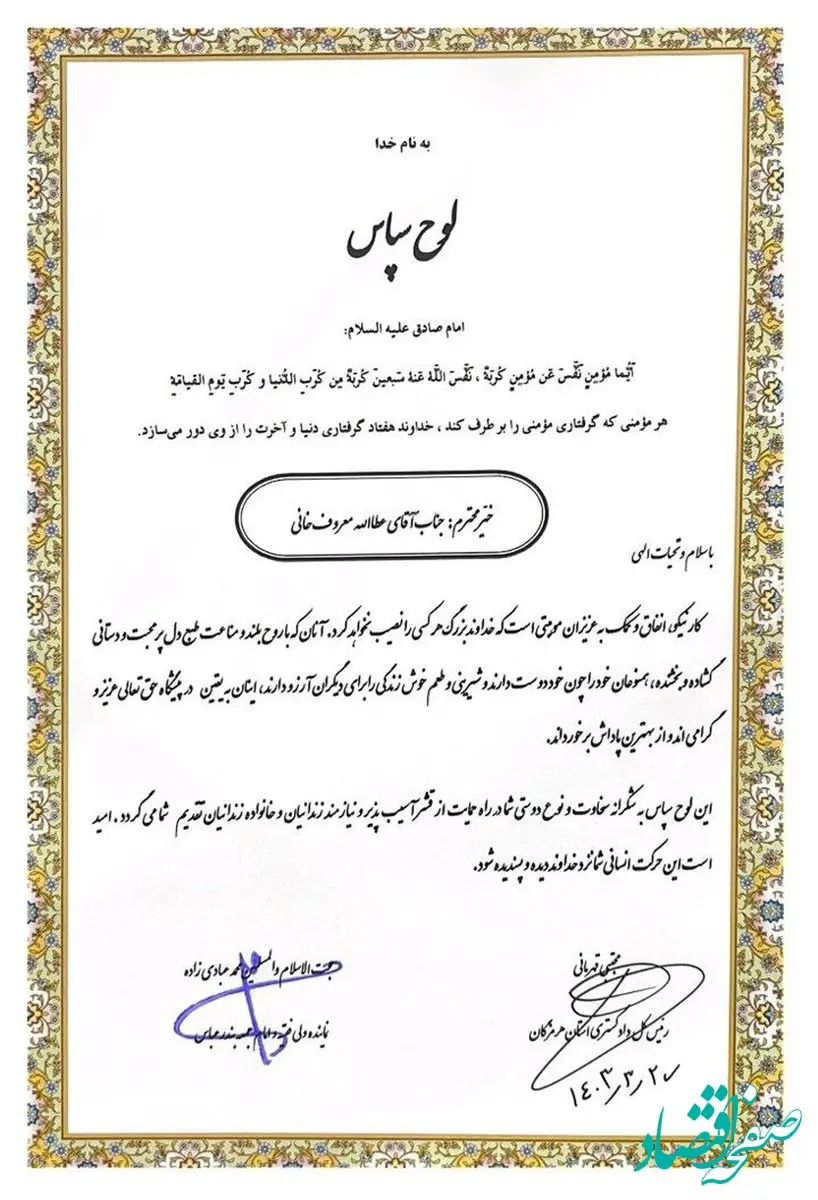 به نام خدا
لوح سپاس
امام صادق علیه السلام:
اَیُّما مُؤمِنٍ نَفَّسَ عَن مُؤمِنٍ کُربَةً ، نَفَّسَ اللّٰهُ عَنهُ سَبعینَ کُربَةً مِن کُرَبِ الدُّنیا و کُرَبِ یَومِ القیامَةِ
هر مؤمنی که گرفتاری مؤمنی را بر طرف کند ، خداوند هفتاد گرفتاری دنیا و آخرت را از وی دور می‌سازد.
خیّر محترم: جناب آقای عطاالله معروف خانی
باسلام و تحیات الهی
کار نیکو، انفاق و کمک به عزیزان موهبتی است که خداوند بزرگ هر کسی را نصیب نخواهد کرد. آنان که با روح بلند و مناعت طبع دل پر محبت و دستانی
گشاده و بخشنده ، همنوعان خود را چون خود دوست دارند و شیرینی و طعم خوش زندگی را برای دیگران آرزو دارند، اینان به یقین در پیشگاه حق تعالی عزیز و
گرامی اند و از بهترین پاداش برخوردارند.
این لوح سپاس به شکرانه سخاوت و نوع دوستی شما در راه حمایت از قشر آسیب پذیر و نیازمند زندانیان و خانواده زندانیان تقدیم شما می گردد . امید
است این حرکت انسانی شما نزد خداوند دیده و پسندیده شود.
مجتبی قهرمانی
رئیس کل دادگستری استان هرمزگان
۱۴۰۳/۳/۲۰
حجت الاسلام والمسلمین محمد عبادی زاده
نماینده ولی فقیه و امام جمعه بندرعباس
صفحه اقتصاد